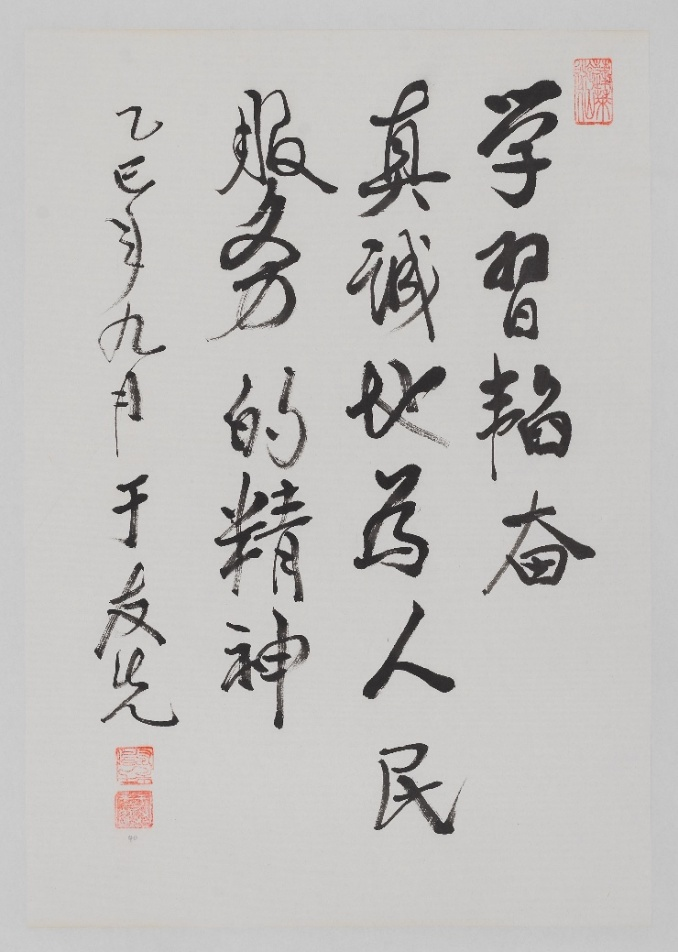 学習韬奋
真诚地为人民
服务的精神
乙巳年九月于友先